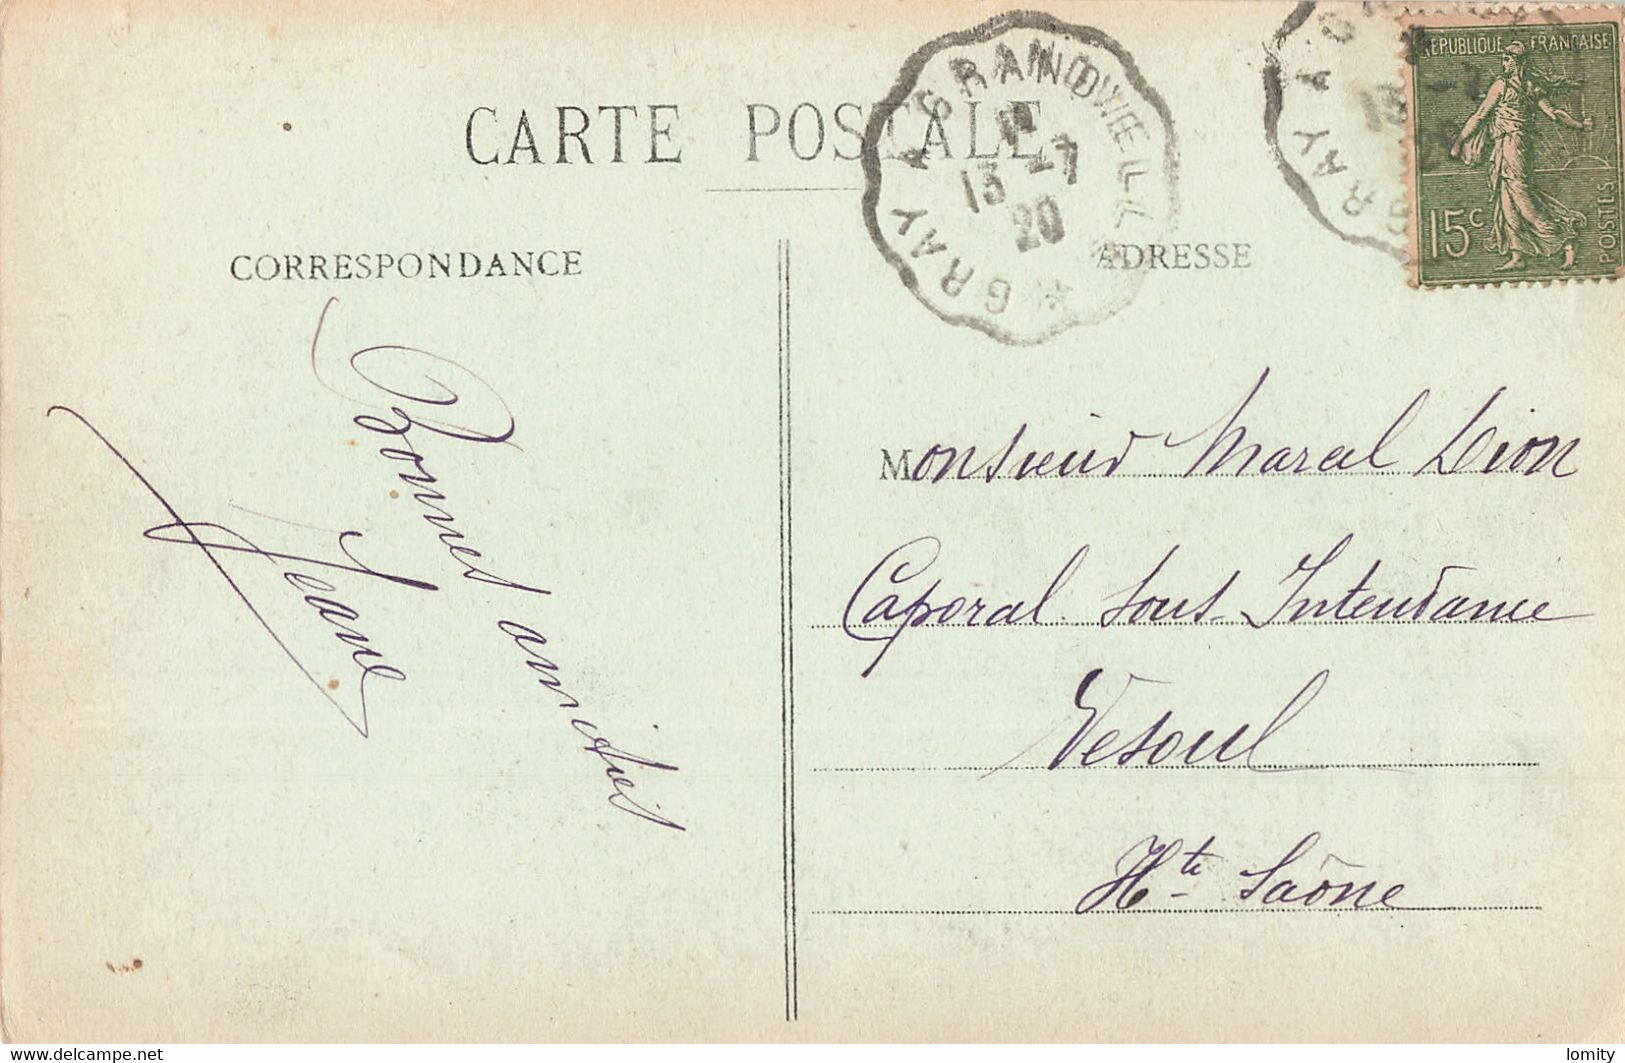 CARTE POSTALE
GRAY A GRANDVELLE
13 -7
20
GRAY A G
13
REPUBLIQUE FRANÇAISE
15c
POSTES
CORRESPONDANCE
ADRESSE
Bonnes amitiés
Jeane
Monsieur Marcel Dion
Caporal Sous-Intendance
Vesoul
Hte Saône
www.delcampe.net
lomity